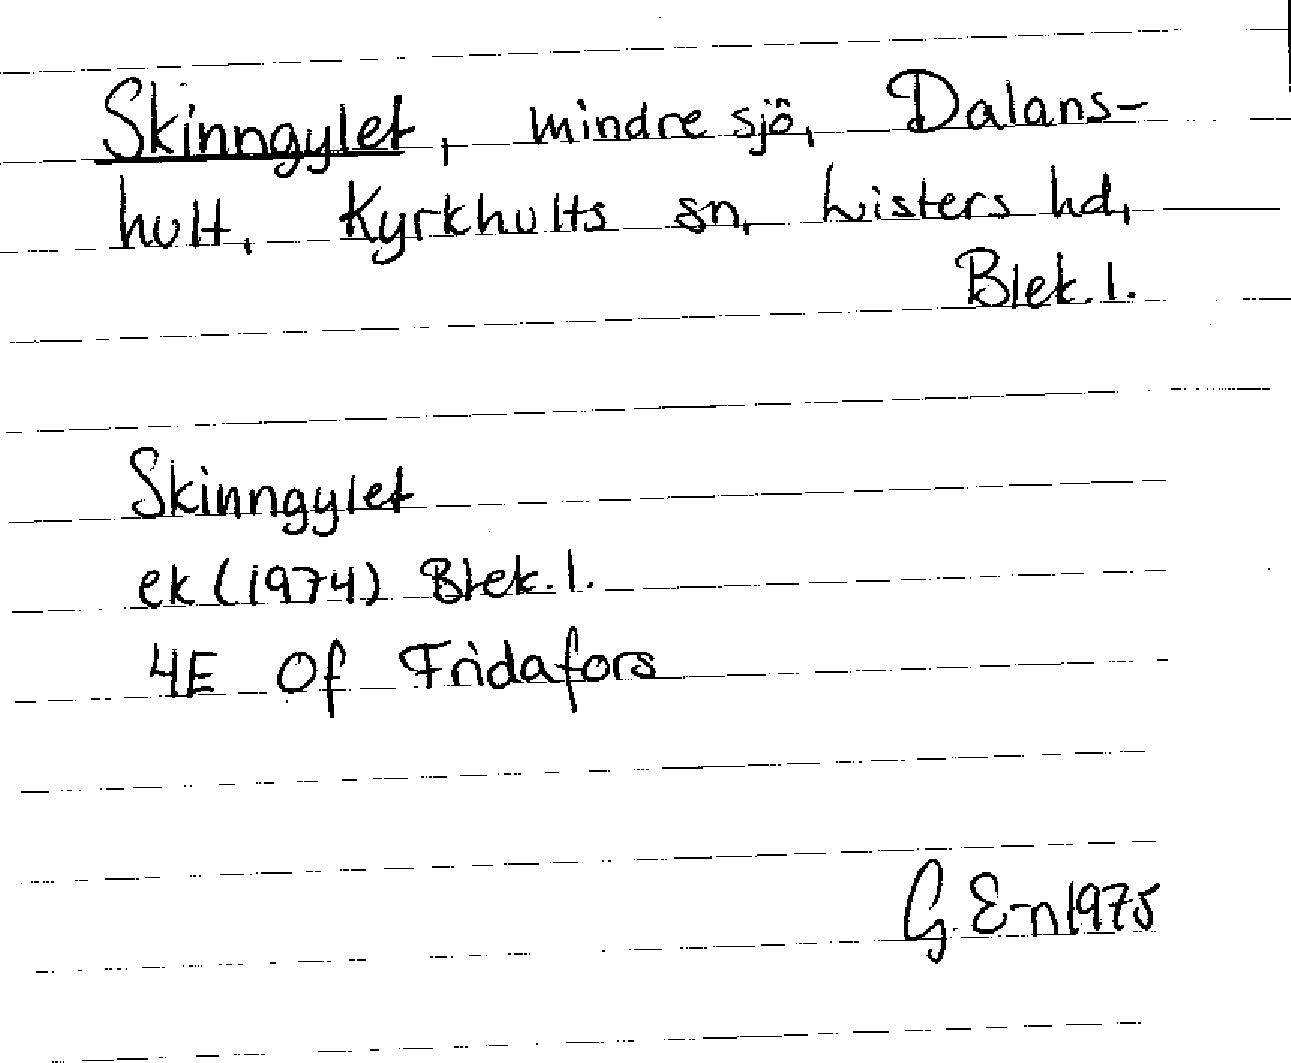 Skinngylet, mindre sjö, Dalans-
hult, Kyrkhults sn, Listers hd,
Blek. l.
Skinngylet
ek (1974) Blek. l.
4E Of Fridafors
G. E-n 1975